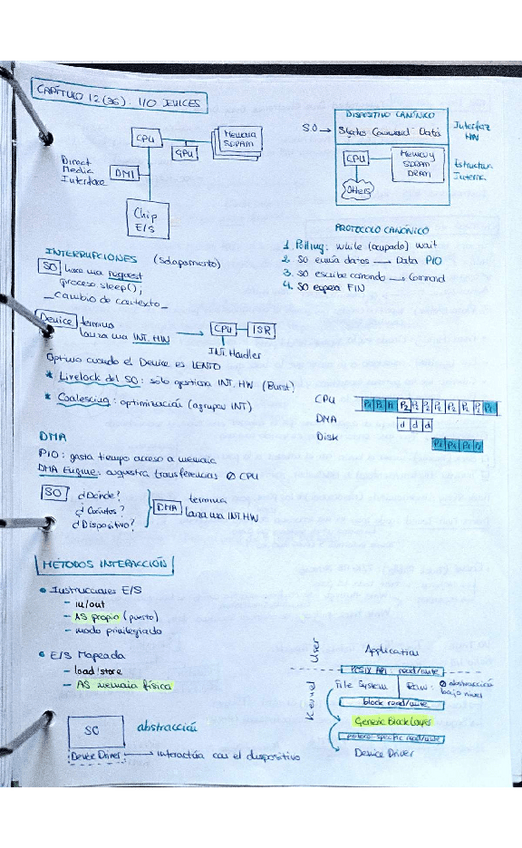 CAPÍTULO 12 (36). I/O DEVICES
CPU
GPU
MEMORIA
SDRAM
Direct
Media
Interface
DMI
Chip
E/S
DISPOSITIVO CANÓNICO
SO
Status Command Data
Interfaz
HW
CPU
Memory
SDRAM
DRAM
Others
Estructura
Interna
PROTOCOLO CANÓNICO
1. Polling: while (ocupado) wait
2. SO envía datos → Data PIO
3. SO escribe comando → Command
4. SO espera FIN
INTERRUPCIONES (Solapamiento)
SO hace una request
proceso sleep(),
_cambio de contexto_
Device termina
lanza una INT. HW
CPU ISR
INT. Handler
Óptimo cuando el Device es LENTO
* Livelock del SO: sólo gestiona INT. HW (Burst)
* Coalescing: optimización (agrupas INT)
CPU
DMA
d d d
Disk
DMA
PIO: gasta tiempo acceso a memoria
DMA Engine: orquestra transferencias ∅ CPU
SO
¿Dónde?
¿Cuántos?
¿Dispositivo?
DMA
termina
lanza una INT. HW
MÉTODOS INTERACCIÓN
• Instrucciones E/S
- in/out
- AS propio (puerto)
- modo privilegiado
• E/S Mapeada
- load/store
- AS memoria física
SO
Device Driver
abstracción
→ interactúa con el dispositivo
User
Kernel
Application
POSIX API read/write
File System
Raw: ∅ abstracción
bajo nivel
block read/write
Generic Block Layer
protocol-specific read/write
Device Driver